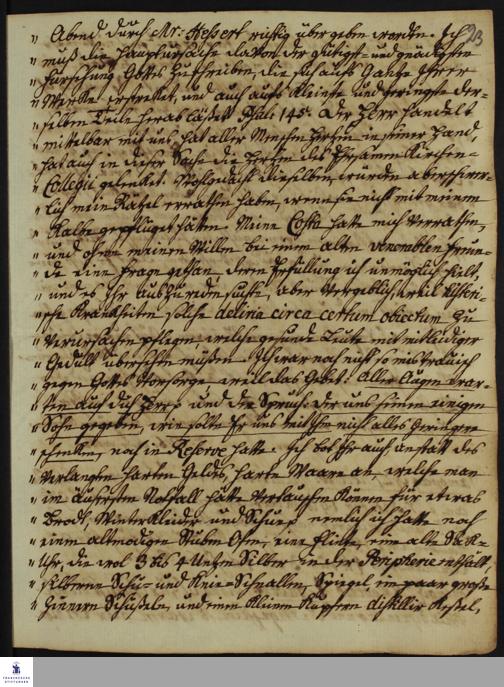 23
" Abend durch Mr: Hessert richtig übergeben worden. Ich
" muß die Hauptursach davon der gütigst- und gnädigsten
" Fürsehung Gottes zuschreiben, die sich aufs Gantze Ihrer
" Wercke erstrecket, und auch aufs kleinste und geringste der-
" selben Teile herablässet Psalm 145. Der Herr handelt
" mittelbar mit uns, hat aller Menschen Hertzen in seiner Hand,
" hat auch in dieser Sache die Hertzen des Ehrsamen Kirchen-
" Collegii gelencket. Wohlgedacht dieselben würden aber schwer-
" lich mein Räzel errathen haben, wenn sie nicht mit meinem
" Kalbe gepflüget hätten. Meine Costa hatte mich verrathen,
" und ohne meinen Willen bei einem alten venerablen Freun-
" de eine Frage gethan deren Erfüllung ich unmöglich hielt,
" und es Ihr auszureden suchte, aber vergeblich, weil Histeri-
" sche Kranckheiten solche deliria circa certum obiectum zu
" verursachen pflegen, welche gesunde Leute mit mitleidiger
" Gedult übersehen müßen. Ich war noch nicht so mistrauisch
" gegen Gottes Vorsorge, weil das Gebet: Aller Augen war-
" ten auf dich Herr und der Spruch: der uns seinen einigen
" Sohn gegeben, wie solte Er uns mit ihm nicht alles geringere
" schencken, noch in Reserve hatte. Ich bot Ihr auch anstatt des
" verlangten harten Gelds, harte Waare an, welche man
" im äusersten Nothfall hätte vertauschen können für etwas
" Brodt, Winterkleider und Schue, nemlich ich hatte noch
" einen altmodigen Stuben Ofen, eine Flinte, eine alte Sack-
" Uhr, die wol 3 bis 4 Untzen Silber in der Peripherie enthält,
" silberne Schu- und Knie-Schnallen, Spiegel, ein paar große
" Zinnern Schüßeln, und einen kleinen Kupfern distillir Keßel,
FRANCKESCHE
STIFTUNGEN